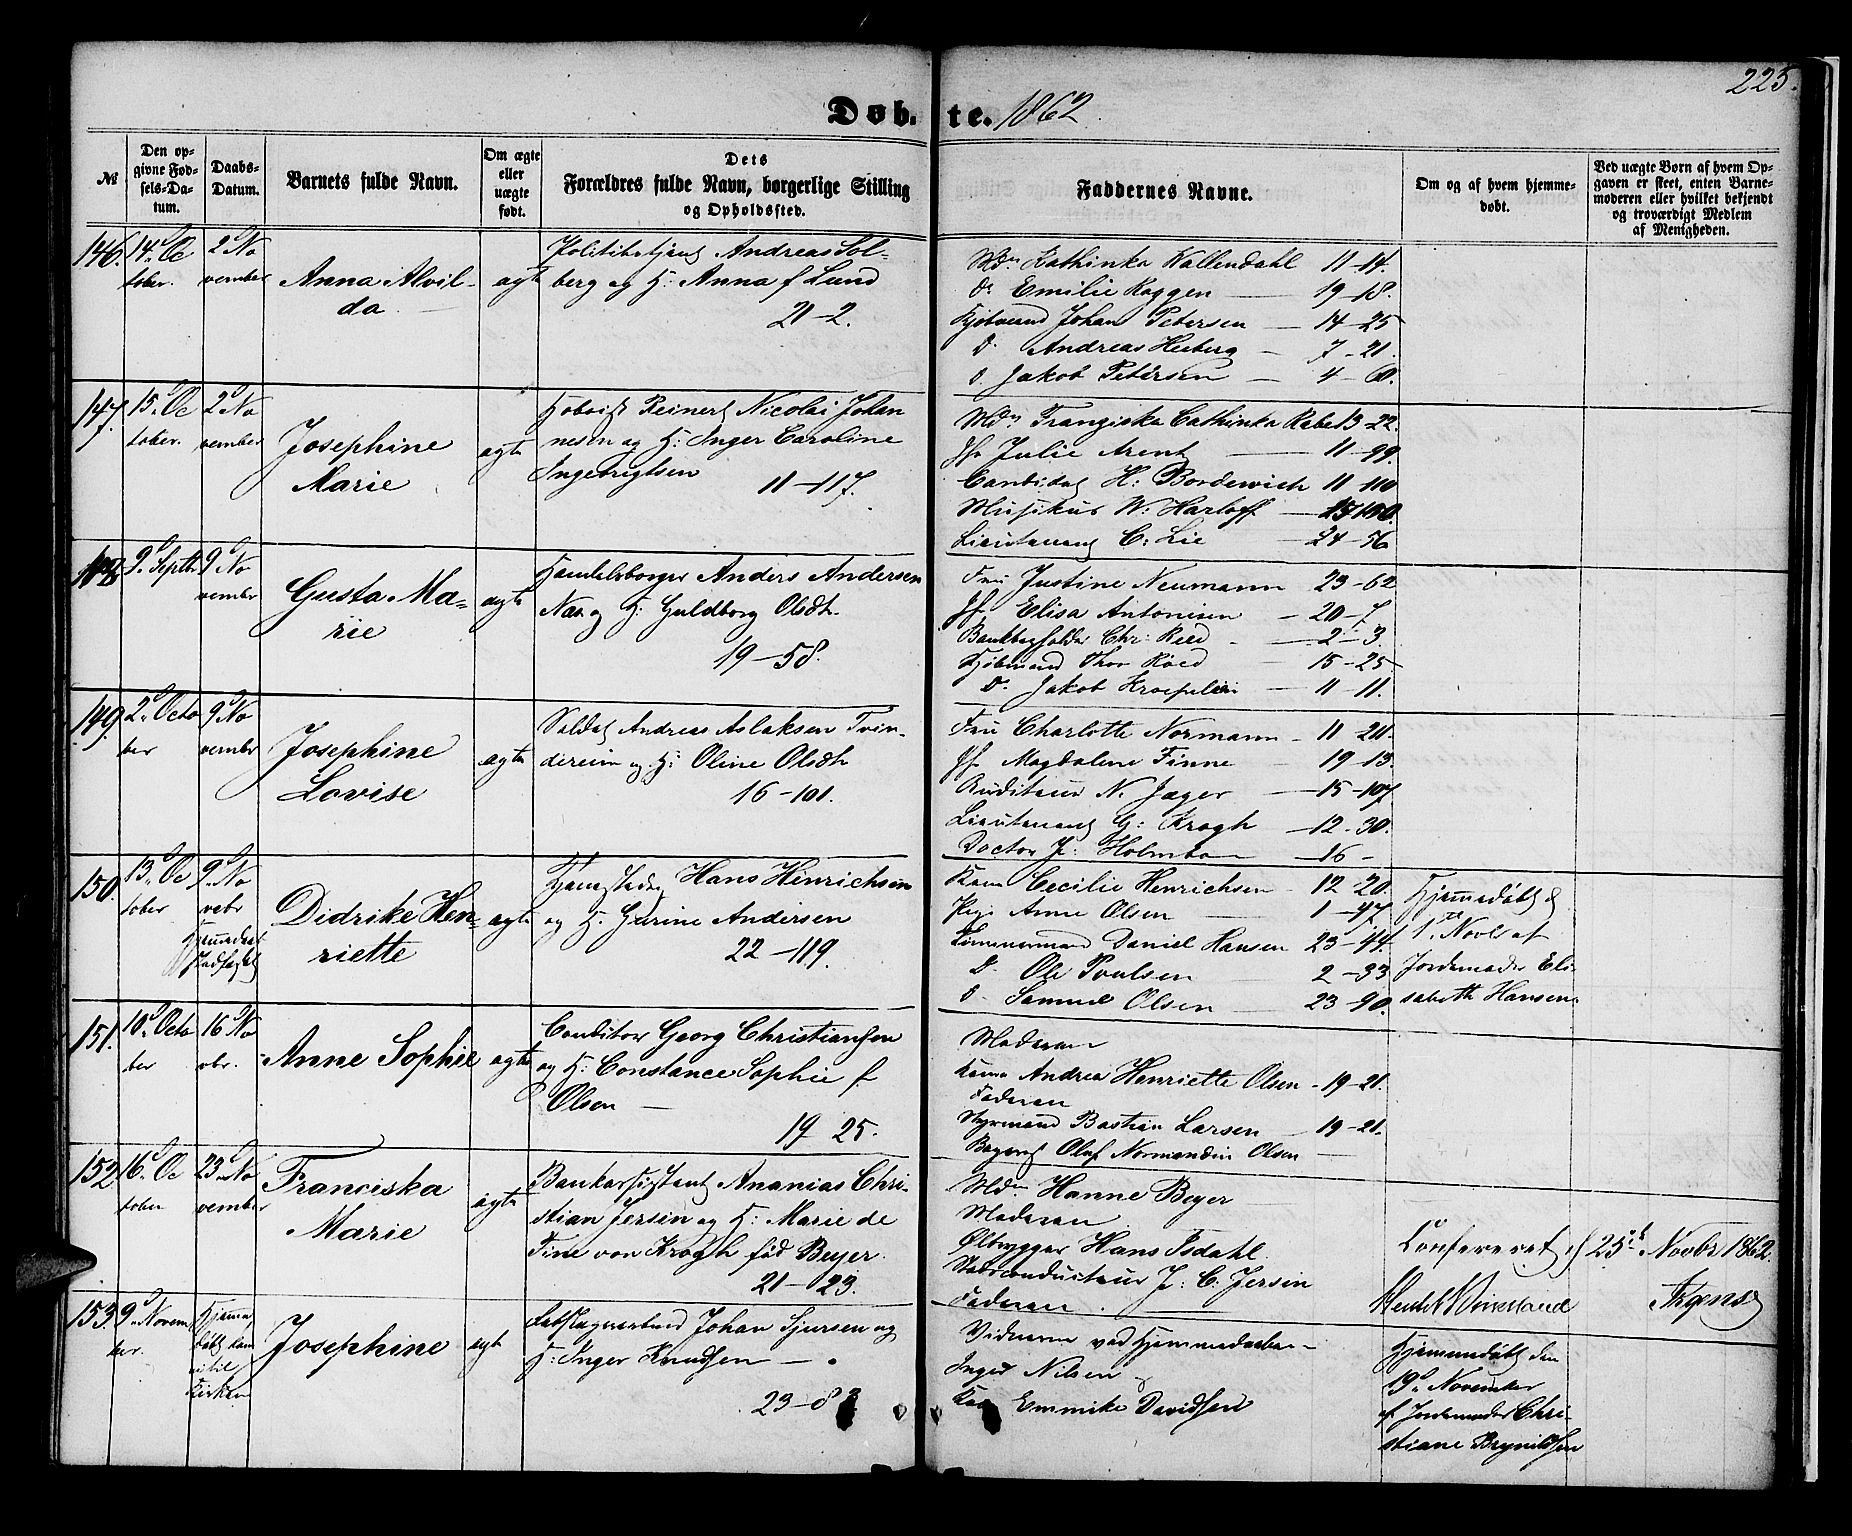 225.
Døbte. 1862.
№
Den opgivne Fødsels-Datum.
Daabs-Datum.
Barnets fulde Navn.
Om ægte eller uægte født.
Dets Forældres fulde Navn, borgerlige Stilling og Opholdssted.
Faddernes Navne.
Om og af hvem hjemmedøbt.
Ved uægte Børn af hvem Opgaven er skeet, enten Barnemoderen eller hvilket bekjendt og troværdigt Medlem af Menigheden.
146. 14. October. 2 November
Anna Alvilda
ægte
Politibetjent Andreas Solberg og H: Anna f Lund
21-2.
Mdm Kathinka Kallendahl 11-14.
Do Emilie Kaggen 19-18.
Johan Petersen 14-25
D. Andreas Heiberg 7-21.
D. Jakob Petersen 4-60.
147. 15. October. 2 November
Josephine Marie
ægte
Hoboist Reinert Nicolai Johannesen og H: Inger Caroline Ingebrigtsen
11-117.
Mdm Franziska Cathinka Rabe 13-22.
Jfr Julie Arent 11-99.
Candidat H: Bordewich 11-110
Musikus W: Harloff
Lieutenant C: Lie 24-56
148. 9. Septbr 9 November
Gusta Marie
ægte
Handelsborger Anders Andersen Næs og H: Guldborg Olsdtr.
19-58.
Fru Justine Neumann 23-62
Jfr Elisa Antonisen 20-7
Chr: 2-3
Kjøbmand Thor Röed 15-25
D. Jakob Kroepelien 11-11.
149. 2. October 9 November
Josephine Lovise
ægte
Soldat Andreas Aslaksen Tvindereim og H: Oline Olsdtr
16-101.
Fru Charlotte Normann 11-20.
Jfr Magdalene Finne 19-13.
Auditeur N. Jæger 15-107.
Lieutenant G: Krogh 12-30.
Doctor J: Holmboe 16-
150. 13. October 9. Novebr
Hjemmedaab Stadfæstet
Didrike Henriette
ægte
Hans Hinrichsen og H. Gurine Andersen
22-119.
Kone Cecilie Henrichsen 12-20.
Pige Anne Olsen 1-47.
Tömmermand Daniel Hansen 23-44.
D. Ole Poulsen 2-33
D. Samuel Olsen 23-90.
Hjemmedöbt d 1te Novbr af Jordemoder Elisabeth Hansen.
151. 10. October 16 Novbr.
Anne Sophie
ægte
Conditor Georg Christiansen og H: Constance Sophie f Olsen
19 25.
Moderen
Kone Andrea Henriette Olsen 19-21.
Faderen
Styrmand Bastian Larsen 19-21.
Oluf Normandin Olsen
152 16. October 23. November
Franciska Marie
ægte
Bankassistent Ananias Christian Jersin og H: Marie de Fine von Krogh fød Beyer.
21-23.
Mdm Hanne Beyer
Moderen
Ølbrygger Hans Isdahl
J: C. Jersin
Faderen
Confereret d 25de Novbr 1862.
153. 9. November.
Hjemmedøbt
Kirken
Josephine
ægte
Johan Sjursen og H: Inger Knudsen
23-83
Vidnerne ved Hjemmedaaben
Inger Nilsen
Kone Emmike Davidsen
Hjemmedöbt den 19. November af Jordemoder Christiane Brynildsen